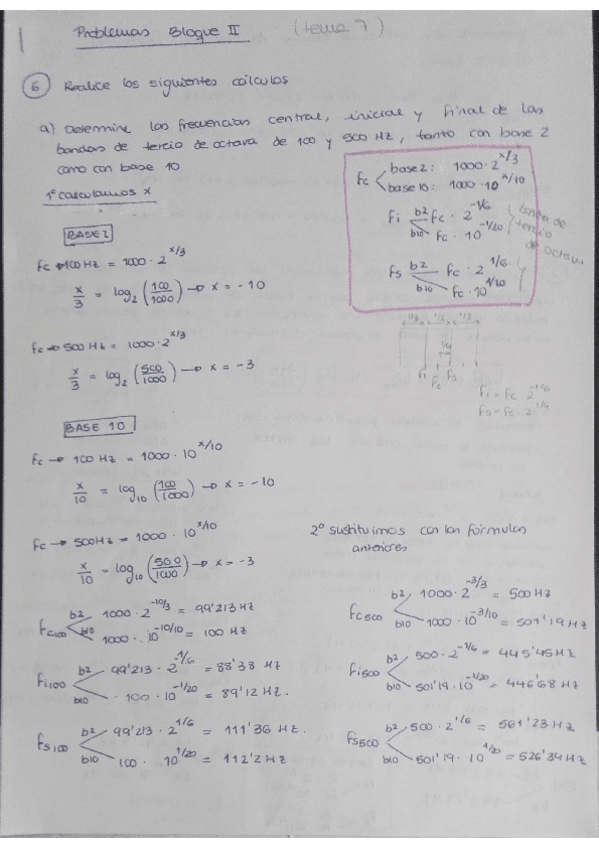 Problemas Bloque II (tema 7)
6 Realice los siguientes cálculos
a) Determine las frecuencias central, inicial y final de las
bandas de tercio de octava de 100 y 500 Hz, tanto con base 2
como con base 10
1º calculamos x
fc base 2: 1000·2^x/3
base 10: 1000·10^x/10
fi b2 fc·2^-1/6
b10 fc·10^-1/20
fs b2 fc·2^1/6
b10 fc·10^1/20
banda de
tercio
de octava
BASE 2
fc → 100 Hz = 1000·2^x/3
x/3 = log2 (100/1000) → x = -10
1/3 1/3 1/3
1/6
fi fc fs
fi = fc 2^-1/6
fs = fc·2^1/6
fc → 500 Hz = 1000·2^x/3
x/3 = log2 (500/1000) → x = -3
BASE 10
fc → 100 Hz = 1000·10^x/10
x/10 = log10 (100/1000) → x = -10
fc → 500Hz = 1000·10^x/10
x/10 = log10 (500/1000) → x = -3
2º sustituimos con las fórmulas
anteriores
fc100 b2 1000·2^-10/3 = 99'213 Hz
b10 1000·10^-10/10 = 100 Hz
fc500 b2 1000·2^-3/3 = 500 Hz
b10 1000·10^-3/10 = 501'19 Hz
fi100 b2 99'213·2^-1/6 = 88'38 Hz
b10 100·10^-1/20 = 89'12 Hz.
fi500 b2 500·2^-1/6 = 445'45 Hz
b10 501'19·10^-1/20 = 446'68 Hz
fs100 b2 99'213·2^1/6 = 111'36 Hz.
b10 100·10^1/20 = 112'2 Hz
fs500 b2 500·2^1/6 = 561'23 Hz
b10 501'19·10^1/20 = 526'34 Hz